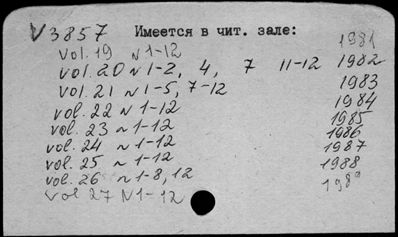 V 3857 Имеется в чит. зале:
vol. 19 N 1-12 1981
vol. 20 N 1-2, 4, 7 11-12 1982
vol. 21 N 1-5, 7-12 1983
vol. 22 N 1-12 1984
vol. 23 N 1-12 1985
vol. 24 N 1-12 1986
vol. 25 N 1-12 1987
vol. 26 N 1-8, 12 1988
vol 27 N 1-12 1989